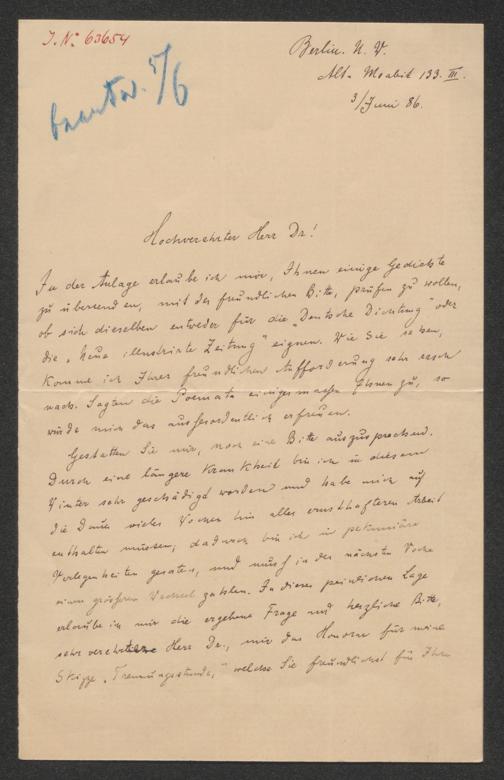 J. N: 63654
beantw. 5/6
Berlin. N. W.
Alt-Moabit 133. III.
3/Juni 86.
Hochverehrter Herr Dr!
In der Anlage erlaube ich mir, Ihnen einige Gedichte
zu übersenden, mit der freundlichen Bitte, prüfen zu wollen,
ob sich dieselben entweder für die "Deutsche Dichtung" oder
die "Neue illustrirte Zeitung" eignen. Wie Sie sehen,
komme ich Ihrer freundlichen Aufforderung sehr rasch
nach. Sagten die Poemata einigermaßen Ihnen zu, so
würde mich das außerordentlich erfreuen.
Gestatten Sie mir, noch eine Bitte auszusprechen.
Durch eine längere Krankheit bin ich in diesem
Winter sehr geschädigt worden und habe mich auf
die Dauer vieler Wochen hin alles ernsthafteren Arbeit
enthalten müssen, dadurch bin ich in pekuniäre
Verlegenheiten geraten, und muß in der nächsten Woche
einen größeren Wechsel zahlen. In dieser peinlichen Lage
erlaube ich mir die ergebene Frage und herzliche Bitte,
sehr verehrter Herr Dr., mir das Honorar für meine
Skizze "Trennungsstunde," welche Sie freundlichst für Ihre